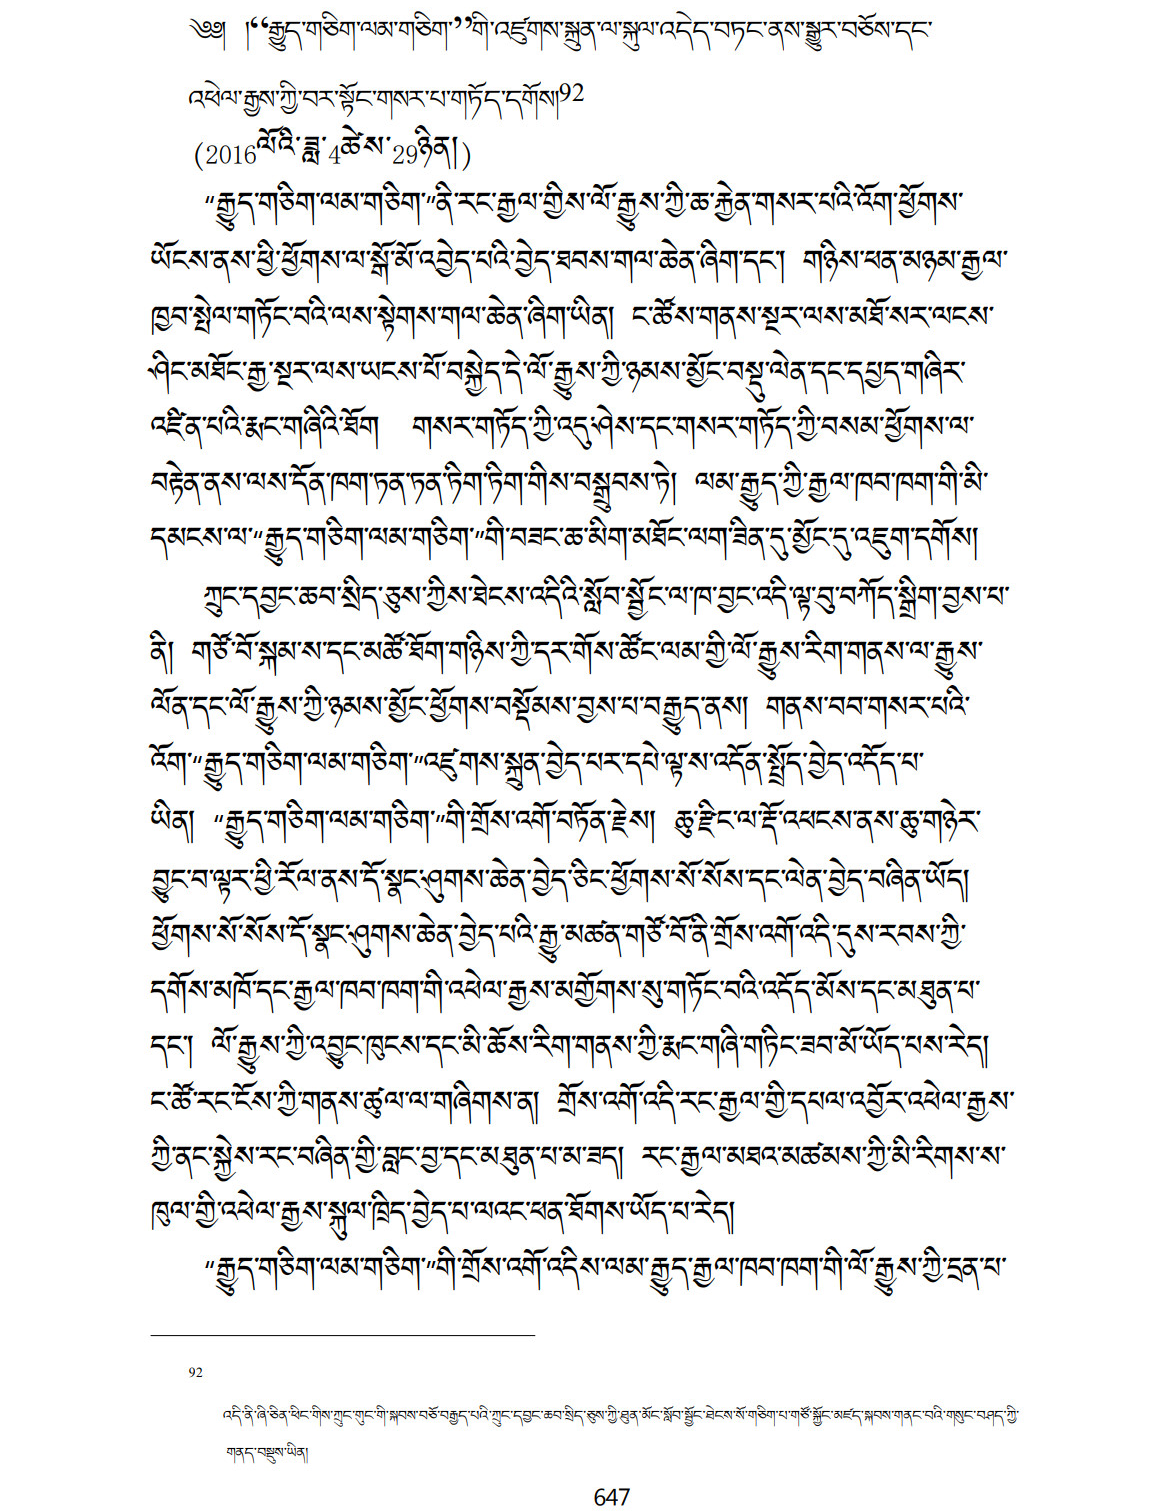 ༄༅། །“རྒྱུད་གཅིག་ལམ་གཅིག་”གི་འཛུགས་སྐྲུན་ལ་སྐུལ་འདེད་བཏང་ནས་སྒྱུར་བཅོས་དང་
འཕེལ་རྒྱས་ཀྱི་བར་སྟོང་གསར་པ་གཏོད་དགོས།92
(2016ལོའི་ཟླ་4ཚེས་29ཉིན།)
“རྒྱུད་གཅིག་ལམ་གཅིག་”ནི་རང་རྒྱལ་གྱིས་ལོ་རྒྱུས་ཀྱི་ཆ་རྐྱེན་གསར་པའི་འོག་ཕྱོགས་
ཡོངས་ནས་ཕྱི་ཕྱོགས་ལ་སྒོ་མོ་འབྱེད་པའི་བྱེད་ཐབས་གལ་ཆེན་ཞིག་དང་། གཉིས་ཕན་མཉམ་རྒྱལ་
ཁྱབ་སྤེལ་གཏོང་བའི་ལས་སྟེགས་གལ་ཆེན་ཞིག་ཡིན། ང་ཚོས་གནས་སྔར་ལས་མཐོ་སར་ལངས་
ཤིང་མཐོང་རྒྱ་སྔར་ལས་ཡངས་པོ་བསྐྱེད་དེ་ལོ་རྒྱུས་ཀྱི་ཉམས་མྱོང་བསྡུ་ལེན་དང་དཔྱད་གཞིར་
འཛིན་པའི་རྨང་གཞིའི་ཐོག གསར་གཏོད་ཀྱི་འདུ་ཤེས་དང་གསར་གཏོད་ཀྱི་བསམ་ཕྱོགས་ལ་
བརྟེན་ནས་ལས་དོན་ཁག་ཏན་ཏན་ཏིག་ཏིག་གིས་བསྒྲུབས་ཏེ། ལམ་རྒྱུད་ཀྱི་རྒྱལ་ཁབ་ཁག་གི་མི་
དམངས་ལ་“རྒྱུད་གཅིག་ལམ་གཅིག་”གི་བཟང་ཆ་མིག་མཐོང་ལག་ཟིན་དུ་མྱོང་དུ་འཇུག་དགོས།
ཀྲུང་དབྱང་ཆབ་སྲིད་ཅུས་ཀྱིས་ཐེངས་འདིའི་སློབ་སྦྱོང་ལ་ཁ་བྱང་འདི་ལྟ་བུ་བཀོད་སྒྲིག་བྱས་པ་
ནི། གཙོ་བོ་སྐམ་ས་དང་མཚོ་ཐོག་གཉིས་ཀྱི་དར་གོས་ཚོང་ལམ་གྱི་ལོ་རྒྱུས་རིག་གནས་ལ་རྒྱུས་
ལོན་དང་ལོ་རྒྱུས་ཀྱི་ཉམས་མྱོང་ཕྱོགས་བསྡོམས་བྱས་པ་བརྒྱུད་ནས། གནས་བབ་གསར་པའི་
འོག་“རྒྱུད་གཅིག་ལམ་གཅིག་”འཛུགས་སྐྲུན་བྱེད་པར་དཔེ་ལྟ་ས་འདོན་སྤྲོད་བྱེད་འདོད་པ་
ཡིན། “རྒྱུད་གཅིག་ལམ་གཅིག་”གི་གྲོས་འགོ་བཏོན་རྗེས། ཆུ་རྫིང་ལ་རྡོ་འཕངས་ནས་ཆུ་གཉེར་
བྱུང་བ་ལྟར་ཕྱི་རོལ་ནས་དོ་སྣང་ཤུགས་ཆེན་བྱེད་ཅིང་ཕྱོགས་སོ་སོས་དང་ལེན་བྱེད་བཞིན་ཡོད།
ཕྱོགས་སོ་སོས་དོ་སྣང་ཤུགས་ཆེན་བྱེད་པའི་རྒྱུ་མཚན་གཙོ་བོ་ནི་གྲོས་འགོ་འདི་དུས་རབས་ཀྱི་
དགོས་མཁོ་དང་རྒྱལ་ཁབ་ཁག་གི་འཕེལ་རྒྱས་མགྱོགས་སུ་གཏོང་བའི་འདོད་མོས་དང་མཐུན་པ་
དང་། ལོ་རྒྱུས་ཀྱི་འབྱུང་ཁུངས་དང་མི་ཆོས་རིག་གནས་ཀྱི་རྨང་གཞི་གཏིང་ཟབ་མོ་ཡོད་པས་རེད།
ང་ཚོ་རང་ངོས་ཀྱི་གནས་ཚུལ་ལ་གཞིགས་ན། གྲོས་འགོ་འདི་རང་རྒྱལ་གྱི་དཔལ་འབྱོར་འཕེལ་རྒྱས་
ཀྱི་ནང་སྐྱེས་རང་བཞིན་གྱི་བླང་བྱ་དང་མཐུན་པ་མ་ཟད། རང་རྒྱལ་མཐའ་མཚམས་ཀྱི་མི་རིགས་ས་
ཁུལ་གྱི་འཕེལ་རྒྱས་སྐུལ་ཁྲིད་བྱེད་པ་ལའང་ཕན་ཐོགས་ཡོད་པ་རེད།
“རྒྱུད་གཅིག་ལམ་གཅིག་”གི་གྲོས་འགོ་འདིས་ལམ་རྒྱུད་རྒྱལ་ཁབ་ཁག་གི་ལོ་རྒྱུས་ཀྱི་དྲན་པ་
92
འདི་ནི་ཞི་ཅིན་ཕིང་གིས་ཀྲུང་གུང་གི་སྐབས་བཅོ་བརྒྱད་པའི་ཀྲུང་དབྱང་ཆབ་སྲིད་ཅུས་ཀྱི་ཐུན་མོང་སློབ་སྦྱོང་ཐེངས་སོ་གཅིག་པ་གཙོ་སྐྱོང་མཛད་སྐབས་གནང་བའི་གསུང་བཤད་ཀྱི་
གནད་བསྡུས་ཡིན།
647